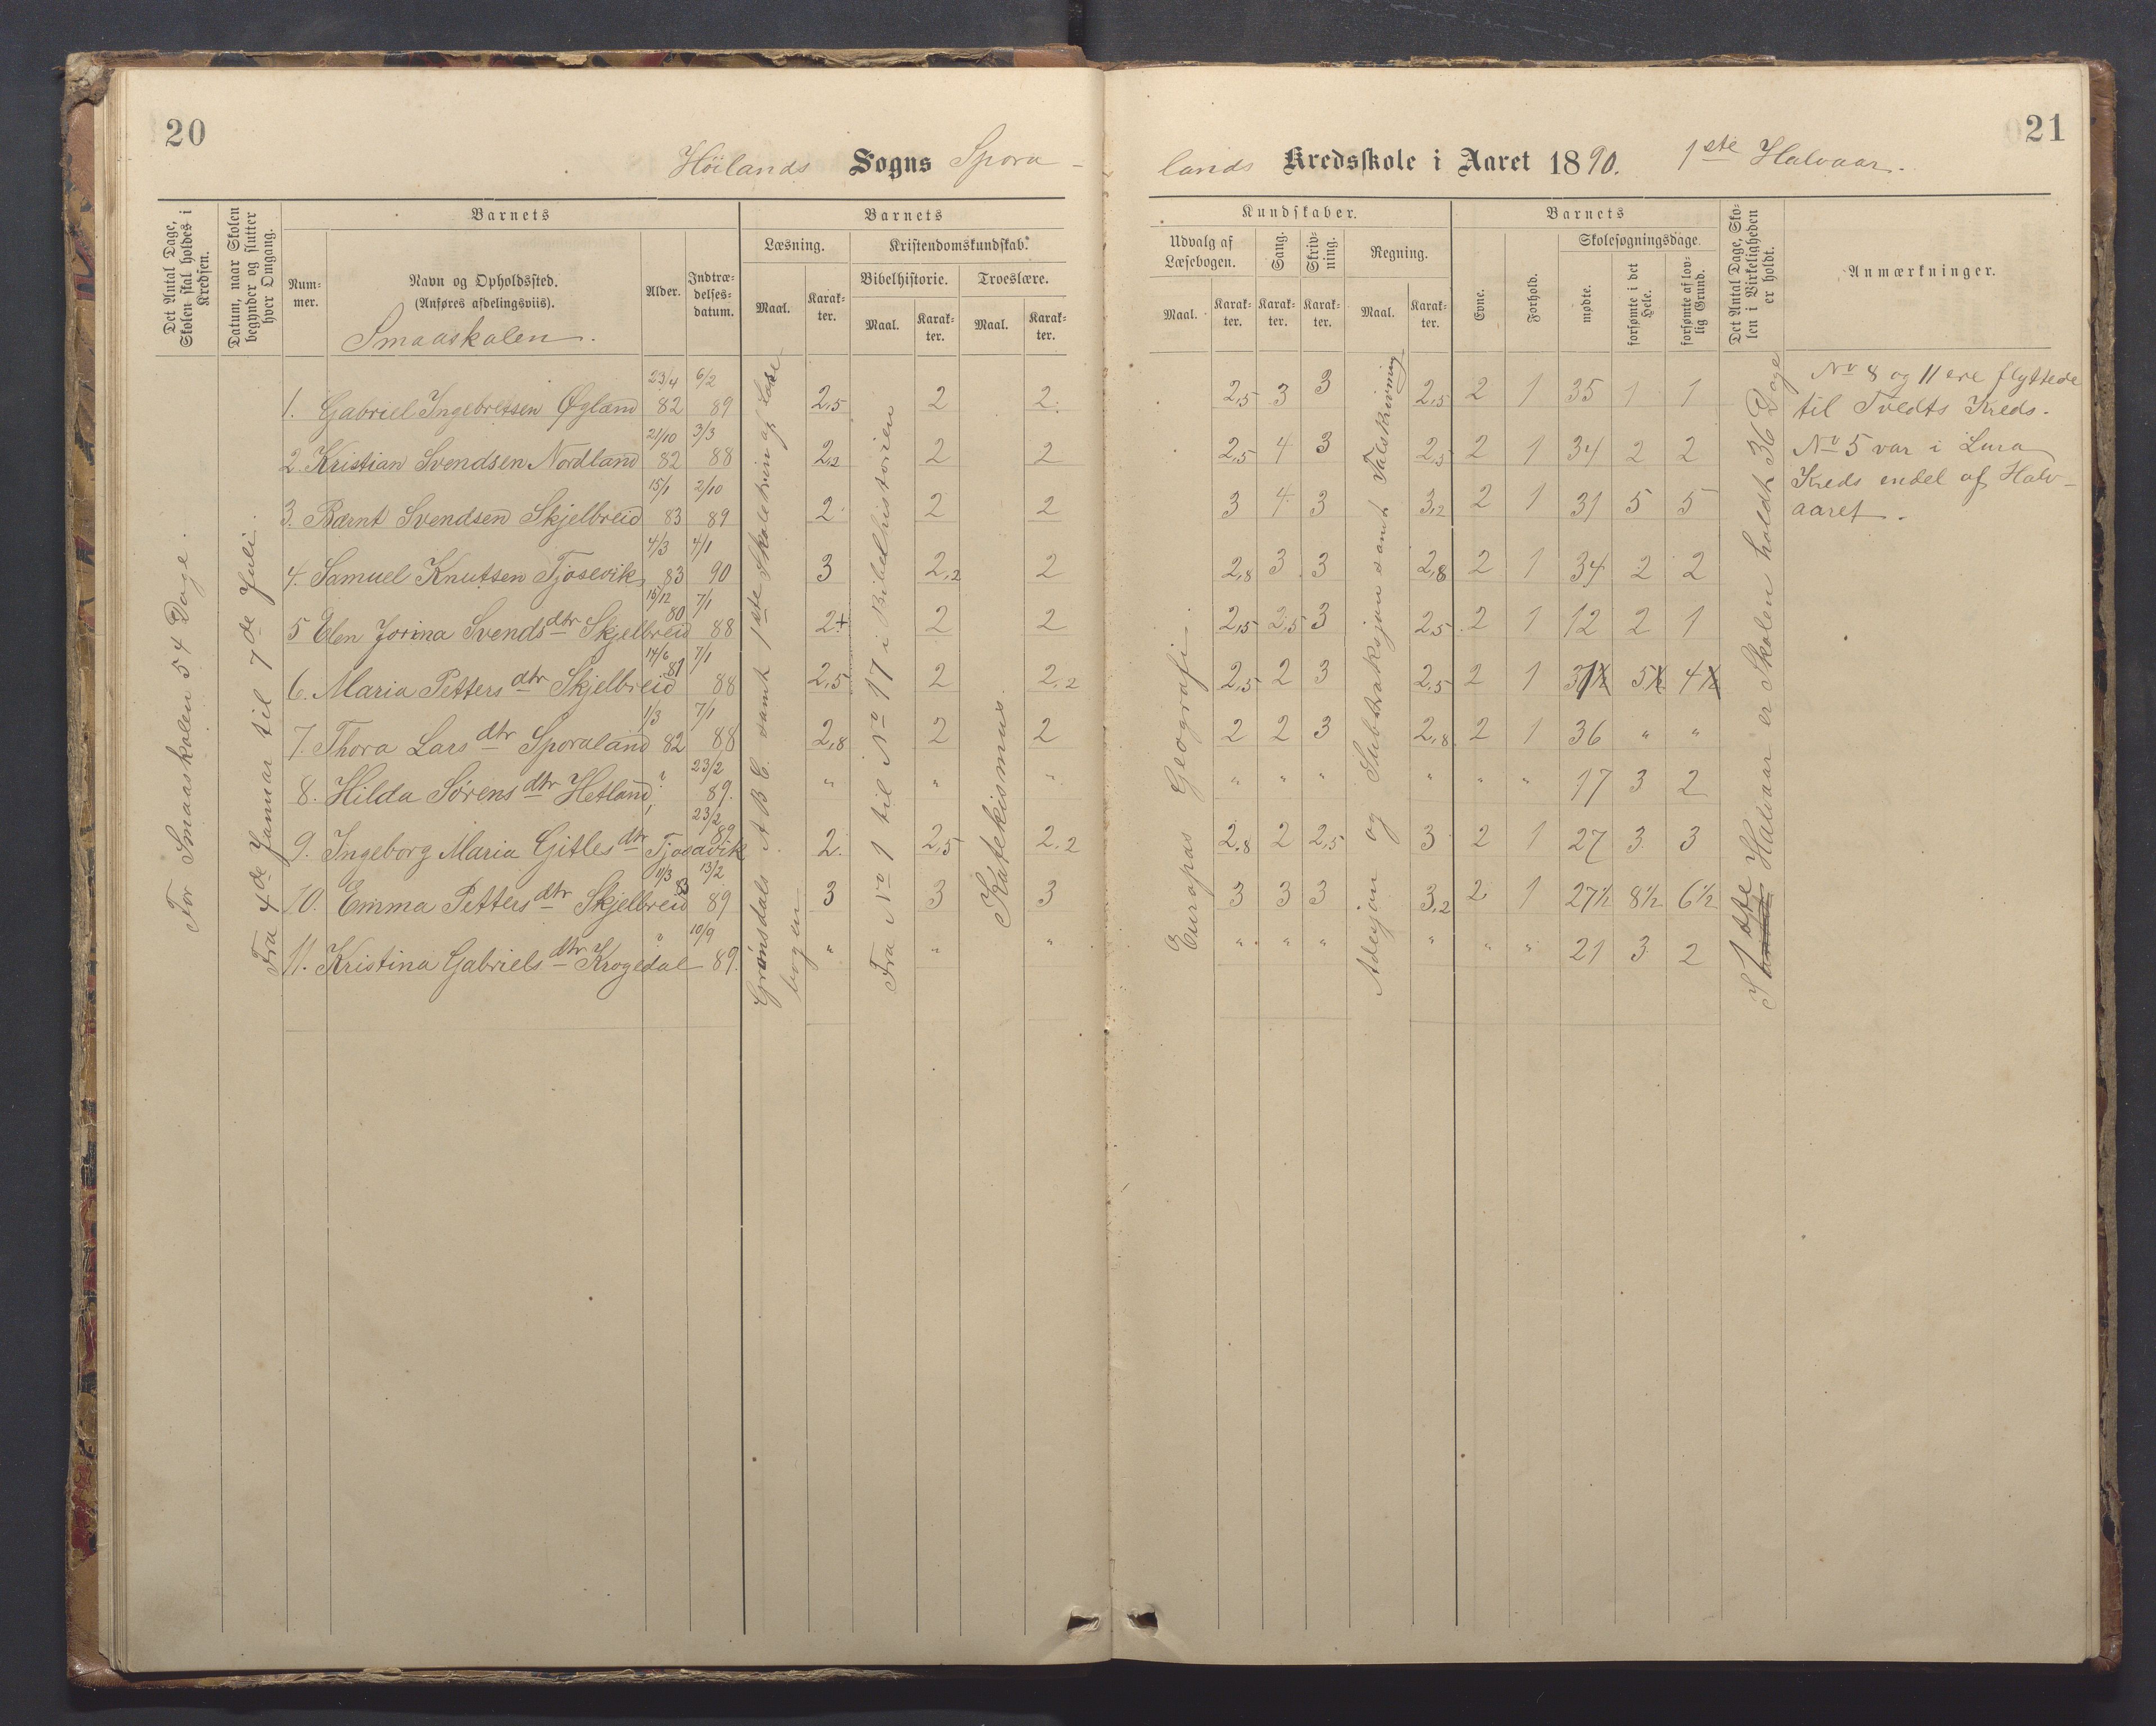 20
Höilands Sogns Spora-
Det Antal Dage, Skolen skal holdes i Kredsen.
Datum, naar Skolen begynder og slutter hver Omgang.
Barnets
Num-mer.
Navn og Opholdssted.
(Anføres afdelingsviis).
Smaaskolen.
Alder.
Indtræ-delses-datum.
Barnets
Læsning.
Maal.
Karak-ter.
Kristendomskundskab.
Bibelhistorie.
Maal.
Karak-ter.
Troeslære.
Maal.
Karak-ter.
For Smaaskolen 54 Dage.
Fra 4de Januar til 7de Juli.
Grønsdals A B C samt 1ste Skoletrin af Læsebogen
Fra No 1 til No 17 i Bibelhistorien
Katekismus.
1. Gabriel Ingebretsen Øgland 23/4 82 6/2 89 2,5 2 2
2. Kristian Svendsen Nordland 21/10 82 3/3 88 2,2 2 2
3. Bærnt Svendsen Skjelbreid 15/1 83 2/10 89 2 2 2
4. Samuel Knutsen Tjosevik 4/3 83 4/1 90 3 2,2 2
5 Elen Jorina Svendsdtr Skjelbreid 16/12 80 7/1 88 2+ 2 2
6. Maria Pettersdtr Skjelbreid 14/6 81 7/1 88 2,5 2 2,2
7. Thora Larsdtr Sporaland 1/3 82 7/1 88 2,8 2 2
8. Hilda Sørensdtr Hetland ? 23/2 89. " " "
9. Ingeborg Maria Gitlesdtr Tjosavik 23/2 89 2. 2,5 2,2
10. Emma Pettersdtr Skjelbreid 11/3 83 13/2 89 3 3 3
11. Kristina Gabrielsdtr Krogedal ? 10/9 89. " " "
21
lands Kredsskole i Aaret 1890. 1ste Halvaar.
Kundskaber.
Udvalg af Læsebogen.
Maal.
Karak-ter.
Sang.
Karak-ter.
Skriv-ning.
Karak-ter.
Regning.
Maal.
Karak-ter.
Barnets
Evne.
Forhold.
Skolesøgningsdage.
mødte.
forsømte i det Hele.
forsømte af lov-lig Grund.
Det Antal Dage, Sko-len i Virkeligheden er holdt.
Anmærkninger.
Europas Geografi.
Adesjon og Subtraksjon samt Talskrivning
I 1ste Halvaar er Skolen holdt 36 Dage
2,5 3 3 2,5 2 1 35 1 1
2,5 4 3 2,5 2 1 34 2 2
3 4 3 3,2 2 1 31 5 5
2,8 3 3 2,8 2 1 34 2 2
2,5 2,5 3 2,5 2 1 12 2 1
2,5 2 3 2,5 2 1 31 5 4
2 2 3 2,8 2 1 36 " "
" " " " " " 17 3 2
2,8 2 2,5 3 2 1 27 3 3
3 3 3 3,2 2 1 27½ 8½ 6½
" " " " " " 21 3 2
No 8 og 11 ere flyttede
til Tvedts Kreds.
No 5 var i Lura
Kreds endel af Halv-
aaret.